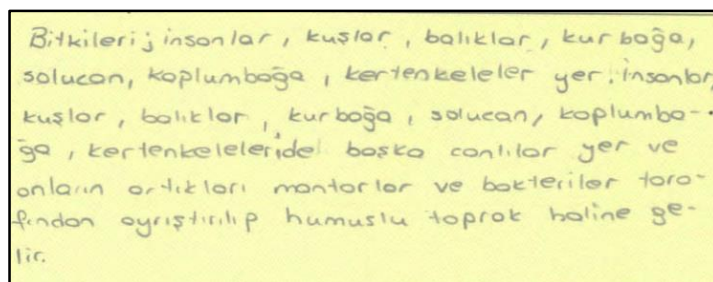 Bitkileri; insanlar, kuşlar, balıklar, kurbağa,
solucan, koplumbağa, kertenkeleler yer. insanlar,
kuşlar, balıklar, kurbağa, solucan, koplumba-
ğa, kertenkeleleride başka canlılar yer ve
onların artıkları mantarlar ve bakteriler tara-
fından ayrıştırılıp humuslu toprak haline ge-
lir.